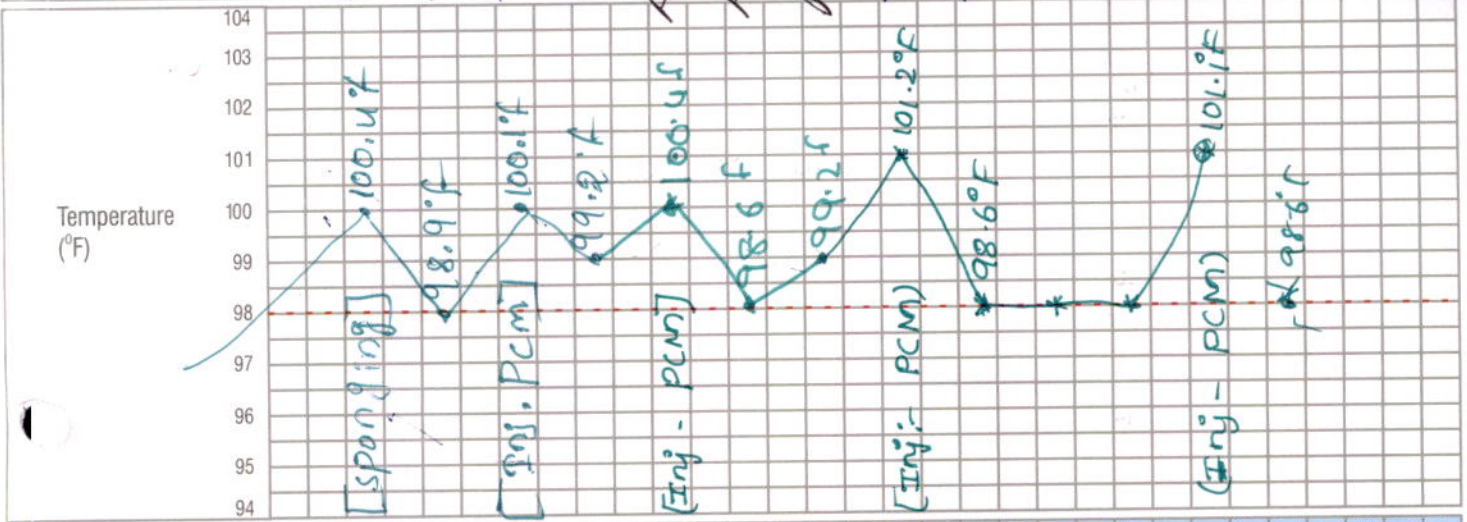 104
103
102
101
100
99
98
97
96
95
94
Temperature
(°F)
100.4°f
98.9°f
100.1°f
99.2°f
100.4f
98.6 f
99.2f
101.2°F
98.6°F
101.1°F
98.6°f
[sponging]
[Inj. Pcm]
[Inj - PCM]
(Inj:- PCM)
(Inj - PCM)